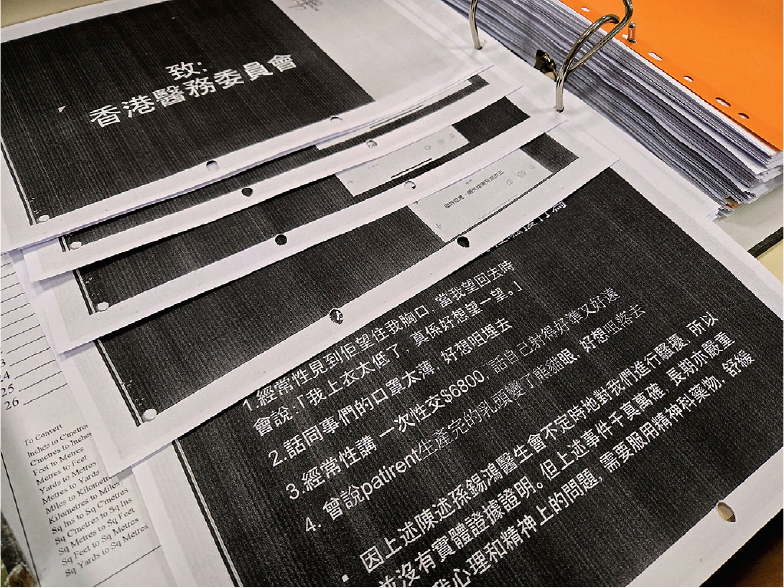 致:
香港醫務委員會
1.經常性見到佢望住我胸口, 當我望回去時
會說:「我上衣太低了，真係好想望一望。」
2.話同事們的口罩太薄, 好想咀埋去
3.經常性講 一次性交$6800, 話自己射得好準又好遠
4. 曾說patirent生產完的乳頭變了熊貓眼, 好想咀落去
• 因上述陳述孫錫鴻醫生會不定時地對我們進行騷擾, 所以
並沒有實體證據證明。但上述事件千真萬確, 長期亦嚴重
我心理和精神上的問題, 需要服用精神科藥物, 舒緩
24
25
26
To Convert
Inches to Cmetres
Cmetres to Inches
Feet to Metres
Metres to Feet
Yards to Metres
Metres to Yards
Miles to Kilometres
Kilometres to Miles
Sq Ins to Sq Cmetres
Sq Cmetres to Sq Ins
Sq Metres to Sq Feet
Sq Feet to Sq Metres
Sq Yards to Sq Metres